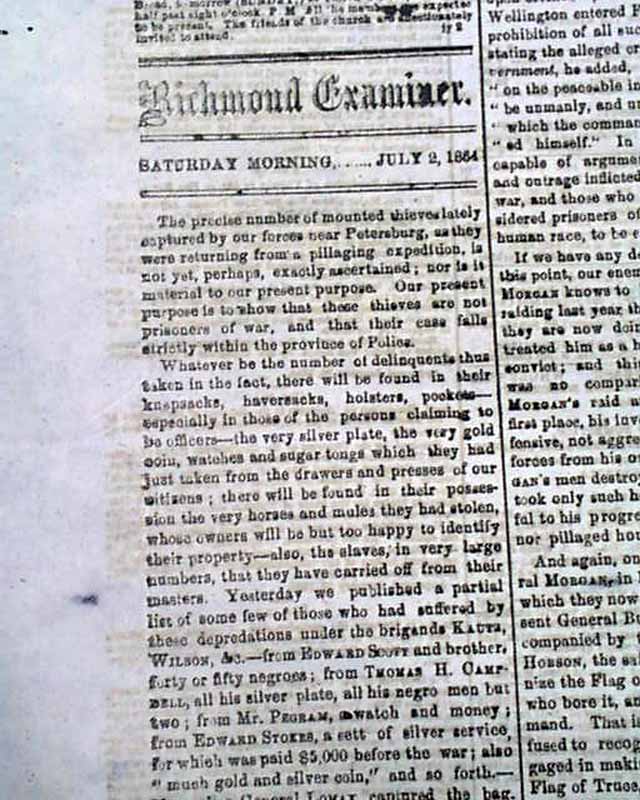 half past eight o'clock P M All the members expected
to be present. The friends of the church are affectionately
invited to attend. jy 2
Richmond Examiner.
SATURDAY MORNING,...... JULY 2, 1864
The precise number of mounted thieves lately
captured by our forces near Petersburg, as they
were returning from a pillaging expedition, is
not yet, perhaps, exactly ascertained; nor is it
material to our present purpose. Our present
purpose is to show that these thieves are not
prisoners of war, and that their case falls
strictly within the province of Police.
Whatever be the number of delinquents thus
taken in the fact, there will be found in their
knapsacks, haversacks, holsters, pockets—
especially in those of the persons claiming to
be officers—the very silver plate, the very gold
coin, watches and sugar tongs which they had
just taken from the drawers and presses of our
citizens; there will be found in their posses-
sion the very horses and mules they had stolen,
whose owners will be but too happy to identify
their property—also, the slaves, in very large
numbers, that they have carried off from their
masters. Yesterday we published a partial
list of some few of those who had suffered by
these depredations under the brigands KAUTZ,
WILSON, &c.—from EDWARD SCOTT and brother,
forty or fifty negroes; from THOMAS H. CAMP-
BELL, all his silver plate, all his negro men but
two; from Mr. PEGRAM, a watch and money;
from EDWARD STOKES, a sett of silver service,
for which was paid $5,000 before the war; also
"much gold and silver coin," and so forth.—
General LOMAX captured the bag.
Wellington entered
prohibition of all suc
stating the alleged
vernment, he added,
" on the peaceable in
" be unmanly, and
" which the comman
" ed himself." In
capable of argumen
and outrage inflicted
war, and those who
sidered prisoners of
human race, to be
If we have any d
this point, our enem
MORGAN knows to
raiding last year th
they are now doin
treated him as a
convict; and thi
was no compar
MORGAN'S raid a
first place, his
fensive, not aggre
forces from his
GAN'S men destroy
took only such h
ful to his progre
nor pillaged hou
And again, on
ral MORGAN, in
which they now
sent General Bu
companied by
HOBSON, the
nize the Flag o
who bore it, an
mand. That i
fused to recog
gaged in maki
Flag of Truce